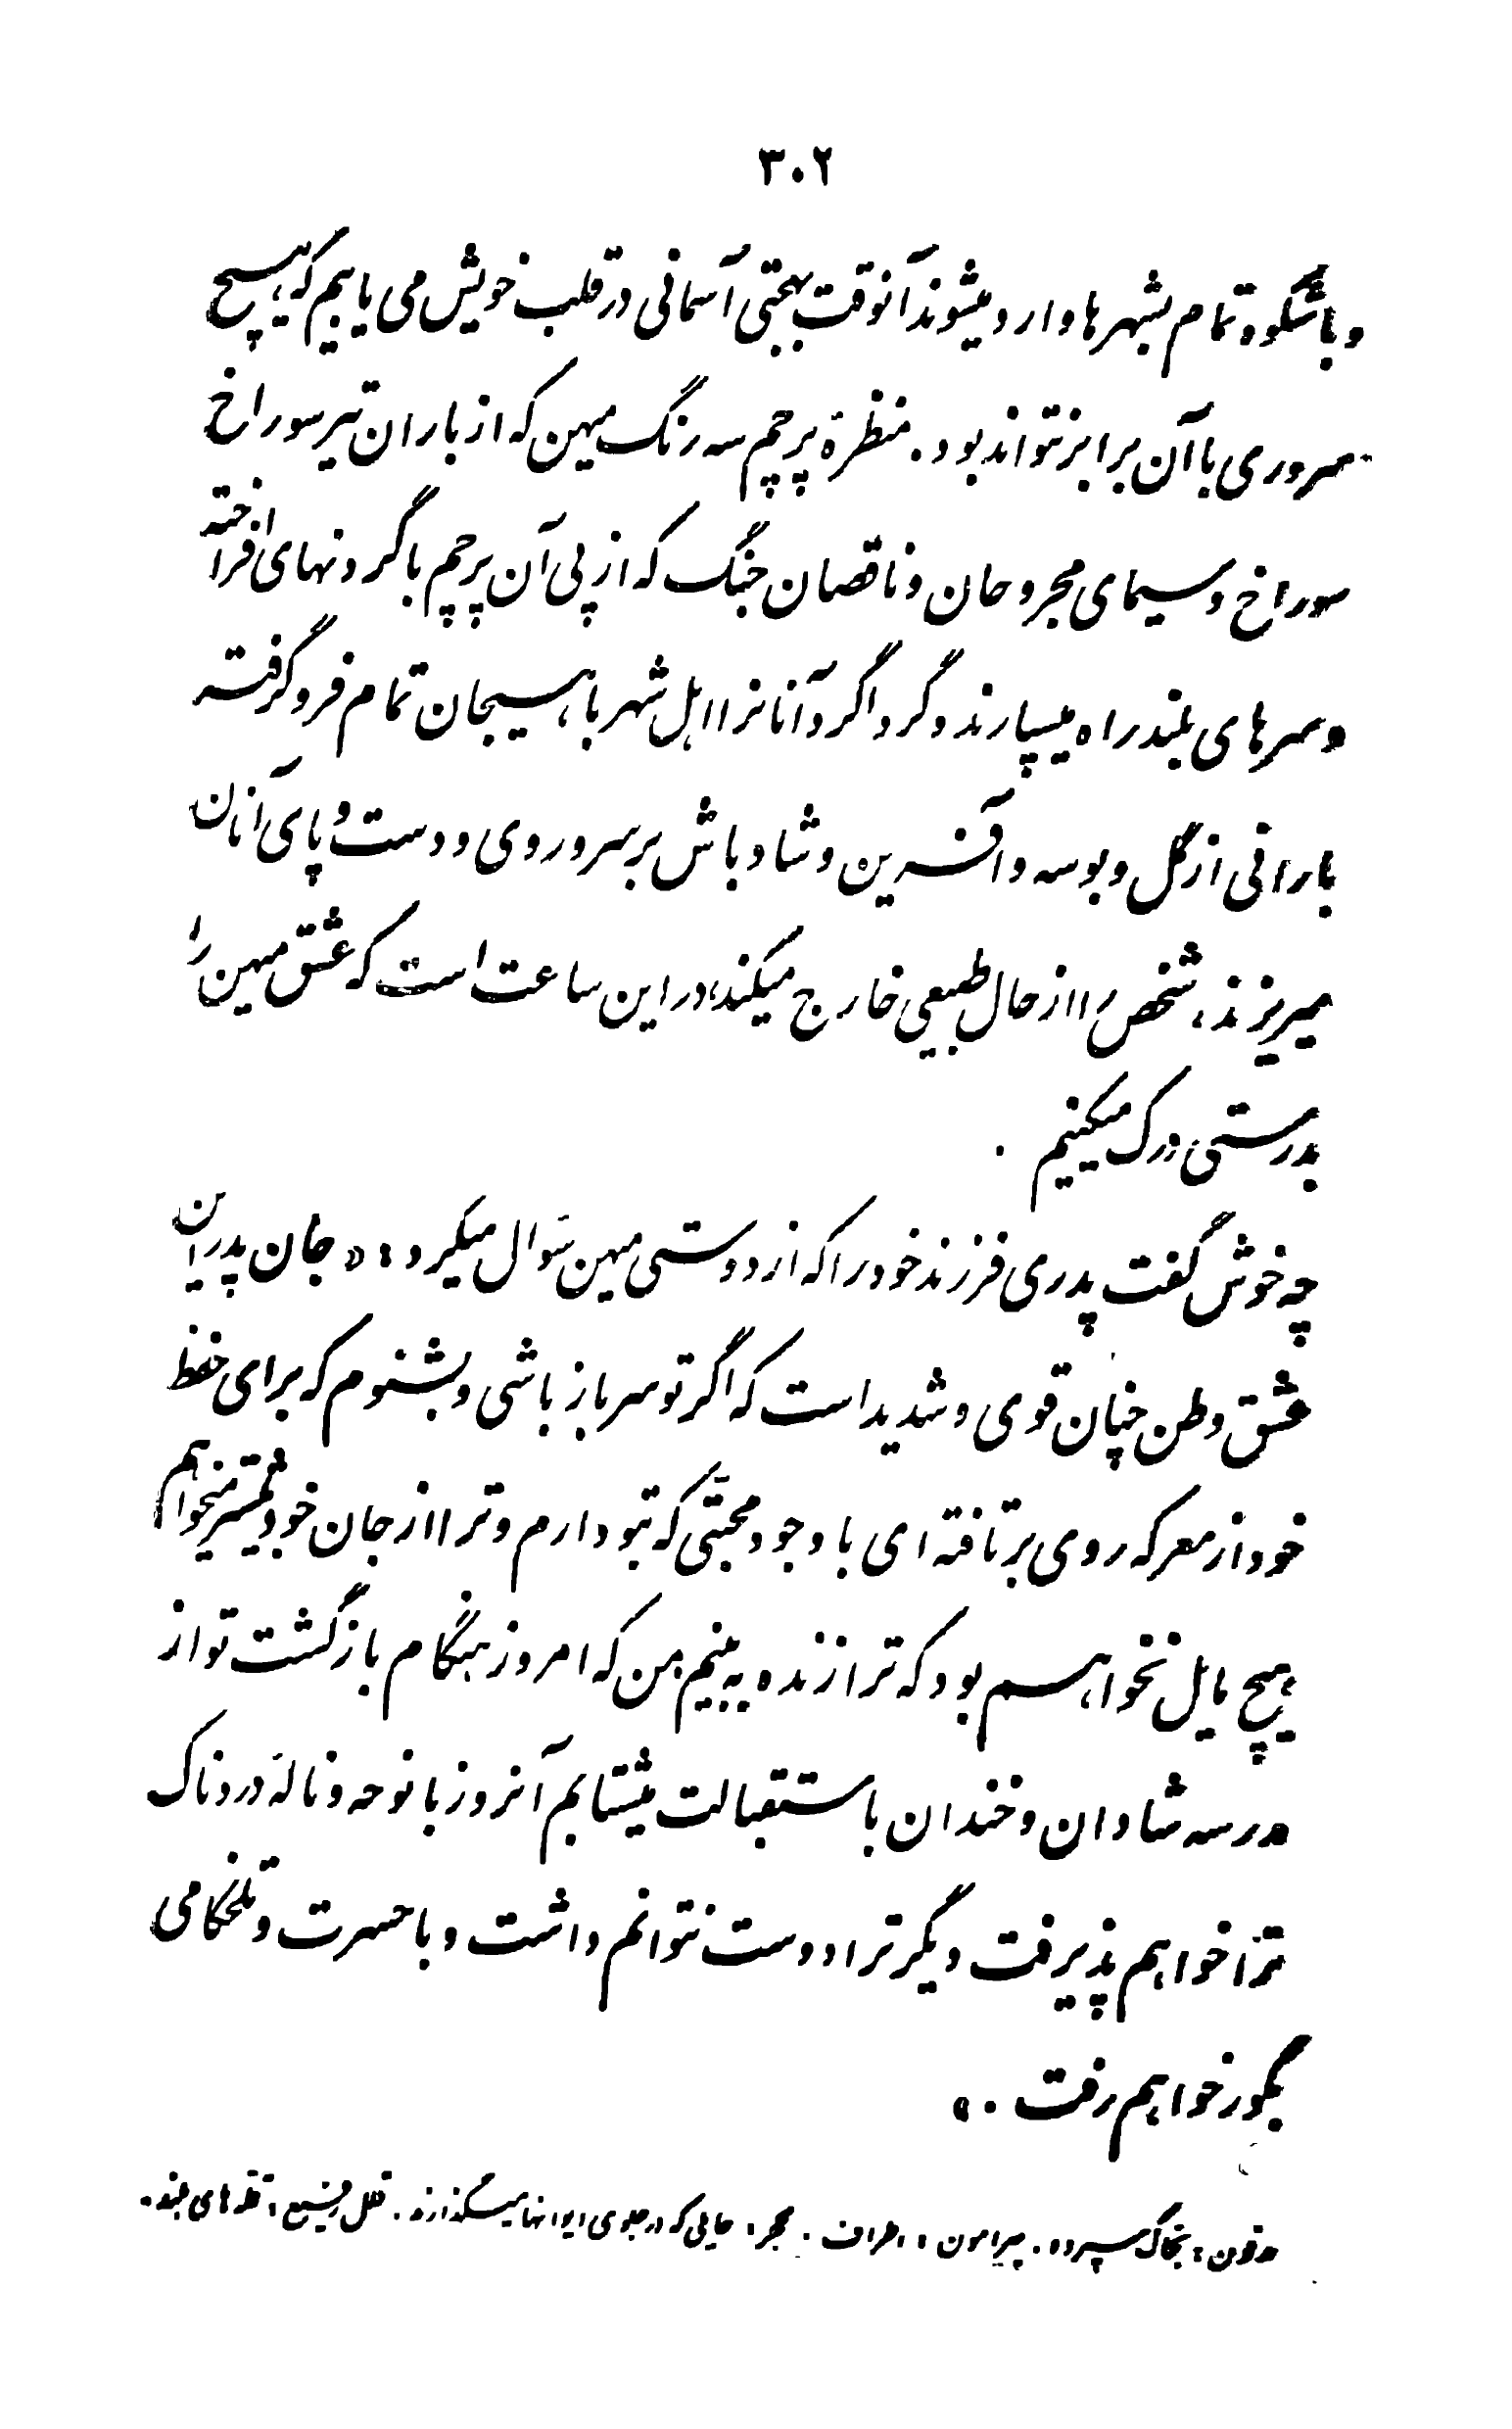 ۳۰۲
و باشکوه تمام بشهرها وارد میشوند آنوقت بهجتی آسمانی در قلب خویش می یابیم که هیچ
سروری با آن برابر نتواند بود. منظرهٔ پرچم سه رنگ میهن که از باران تیر سوراخ
سوراخ و سیمای مجروحان و ناقصان جنگ که از پی آن پرچم با گردنهای افراخته
و سرهای بلند راه میسپارند و گرداگرد آنانرا اهل شهر با هیجان تمام فرو گرفته
بارانی از گل و بوسه و آفرین و شادباش بر سر و روی و دست و پای آنان
میریزند، شخص را از حال طبیعی خارج میکند، در این ساعت است که عشق میهن را
بدرستی درک میکنیم .
چه خوش گفت پدری فرزند خود را که از دوستی میهن سؤال میکرد: «جان پدر این
عشق وطن چنان قوی و شدید است که اگر تو سرباز باشی و بشنوم که برای حفظ
خود از معرکه روی برتافته ای با وجود محبّتی که بتو دارم و ترا از جان خود بیشتر میخواهم
هیچ مایل نخواهم بود که ترا زنده به بینم، من که امروز هنگام بازگشت تو از
مدرسه شادان و خندان باستقبالت میشتابم آنروز با نوحه و نالهٔ دردناک
ترا خواهم پذیرفت دیگر ترا دوست نتوانم داشت و با حسرت و تلخکامی
بگور خواهم رفت .»
مدفون: بخاک سپرده. پیرامون: اطراف. محجر: جایی که در جلوی ایوانها میگذارند. قلل رفیع: قله های بلند.